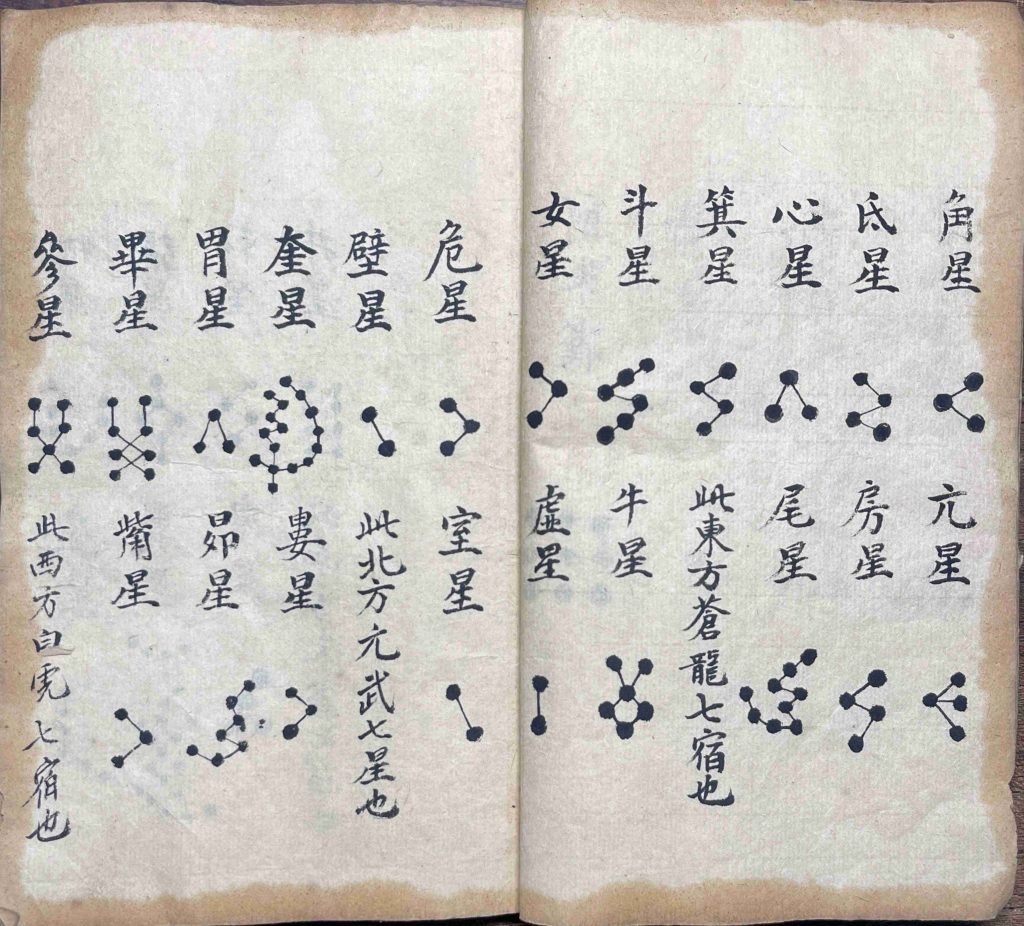 角星
亢星
氐星
房星
心星
尾星
箕星
此東方蒼龍七宿也
斗星
牛星
女星
虛星
危星
室星
壁星
此北方元武七星也
奎星
婁星
胃星
昴星
畢星
觜星
參星
此西方白虎七宿也